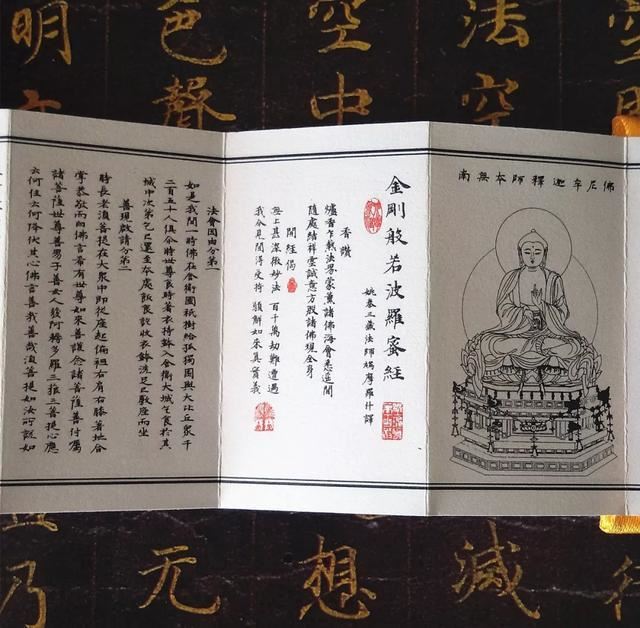 南無本師釋迦牟尼佛
金剛般若波羅蜜經
姚秦三藏法師鳩摩羅什譯
香讚
爐香乍爇法界蒙薰諸佛海會悉遙聞
隨處結祥雲誠意方殷諸佛現全身
開經偈
無上甚深微妙法 百千萬劫難遭遇
我今見聞得受持 願解如來真實義
法會因由分第一
如是我聞一時佛在舍衛國祇樹給孤獨園與大比丘眾千
二百五十人俱尒時世尊食時著衣持鉢入舍衛大城乞食於其
城中次第乞已還至本處飯食訖收衣鉢洗足已敷座而坐
善現啟請分第二
時長老須菩提在大眾中即從座起偏袒右肩右膝著地合
掌恭敬而白佛言希有世尊如來善護念諸菩薩善付囑
諸菩薩世尊善男子善女人發阿耨多羅三藐三菩提心應
云何住云何降伏其心佛言善哉善哉須菩提如汝所說如
法空
空中
色聲
明
滅
想
无
乃